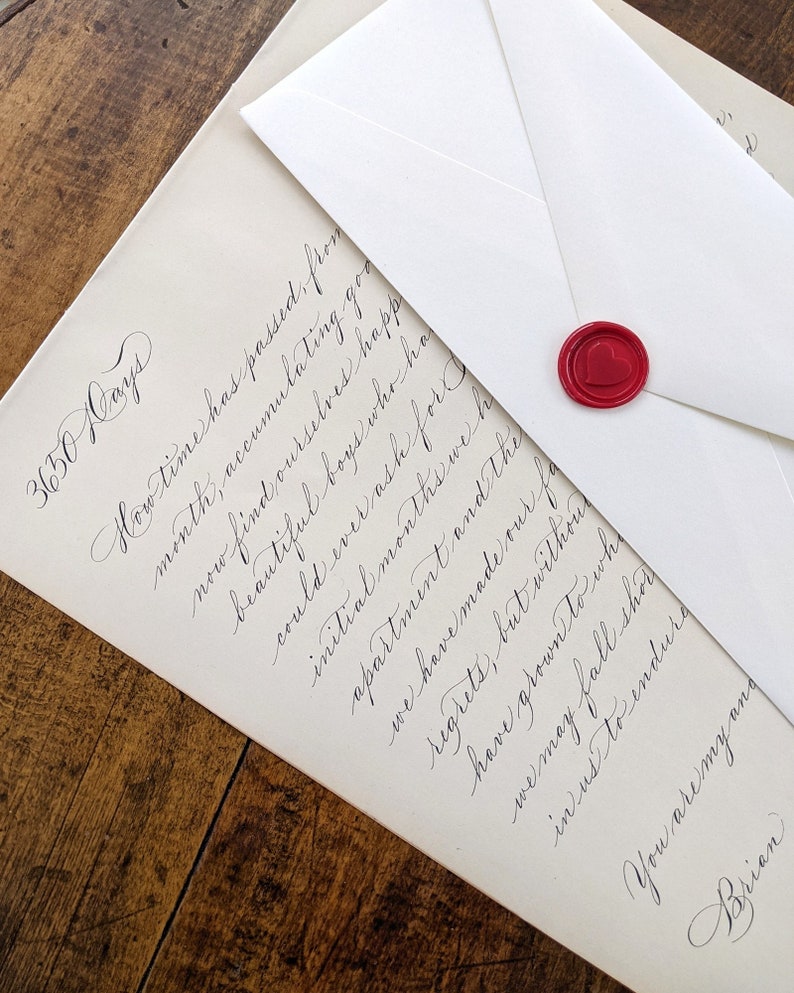 3650 Days
How time has passed, from
month, accumulating goo
now find ourselves happ
beautiful boys who ha
could ever ask for
initial months we h
apartment and the
we have made our fa
regrets, but without
have grown to wh
we may fall shor
in us to endure
You are my and
Brian